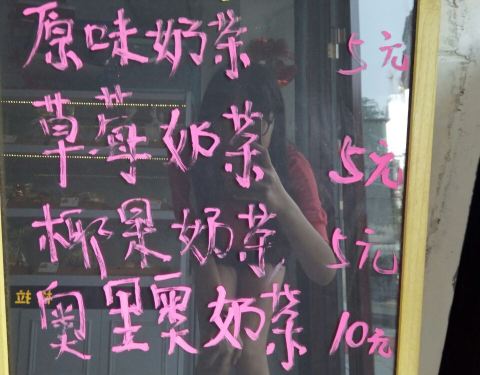 原味奶茶 5元
草莓奶茶 5元
椰果奶茶 5元
奥里奥奶茶 10元